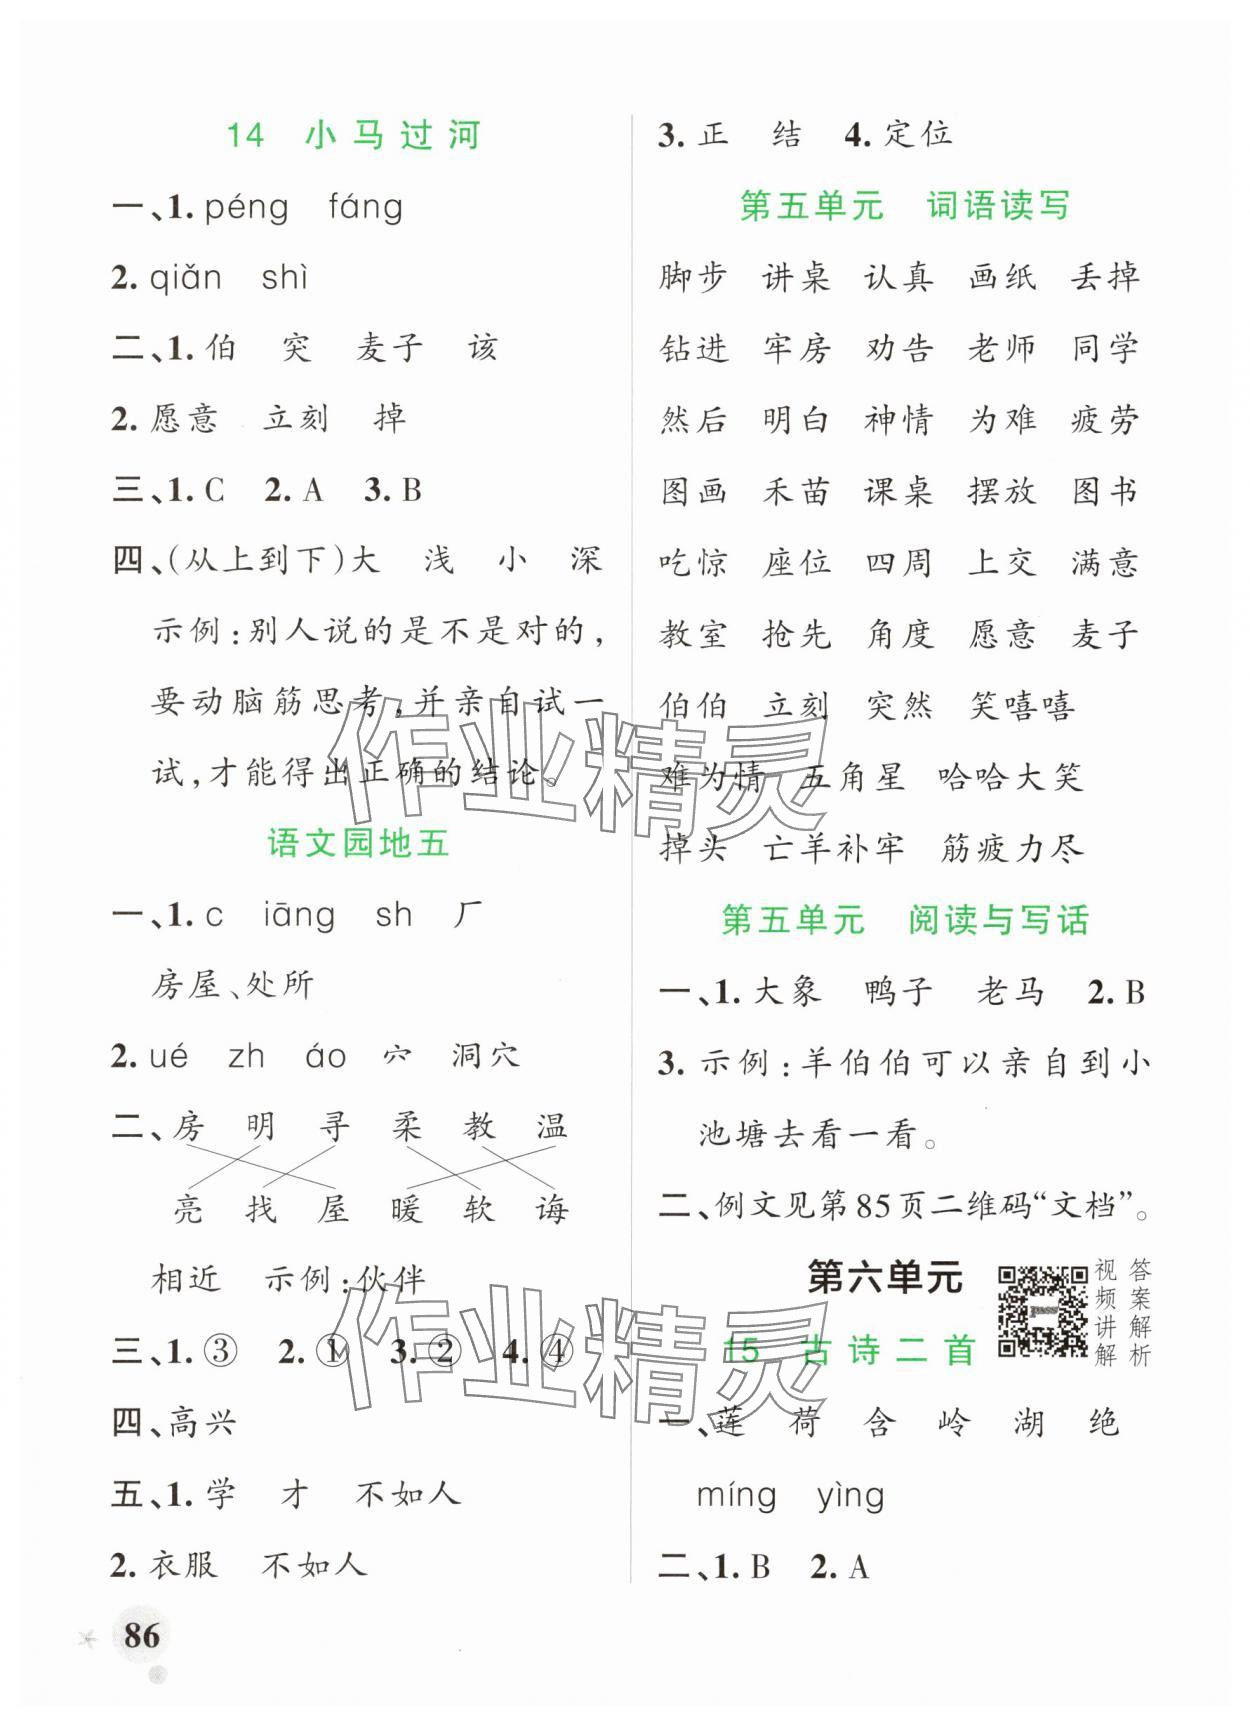 14 小马过河
一、1. péng fáng
2. qiǎn shì
二、1. 伯 突 麦子 该
2. 愿意 立刻 掉
三、1. C 2. A 3. B
四、(从上到下)大 浅 小 深
示例:别人说的是不是对的,
要动脑筋思考,并亲自试一
试,才能得出正确的结论。
语文园地五
一、1. c iāng sh 厂
房屋、处所
2. ué zh áo 穴 洞穴
二、房 明 寻 柔 教 温
亮 找 屋 暖 软 诲
相近 示例:伙伴
三、1. ③ 2. ① 3. ② 4. ④
四、高兴
五、1. 学 才 不如人
2. 衣服 不如人
86
3. 正 结 4. 定位
第五单元 词语读写
脚步 讲桌 认真 画纸 丢掉
钻进 牢房 劝告 老师 同学
然后 明白 神情 为难 疲劳
图画 禾苗 课桌 摆放 图书
吃惊 座位 四周 上交 满意
教室 抢先 角度 愿意 麦子
伯伯 立刻 突然 笑嘻嘻
难为情 五角星 哈哈大笑
掉头 亡羊补牢 筋疲力尽
第五单元 阅读与写话
一、1. 大象 鸭子 老马 2. B
3. 示例:羊伯伯可以亲自到小
池塘去看一看。
二、例文见第85页二维码“文档”。
第六单元
视频讲解
答案解析
15 古诗二首
一、莲 荷 含 岭 湖 绝
míng yìng
二、1. B 2. A
作业精灵
作业精灵